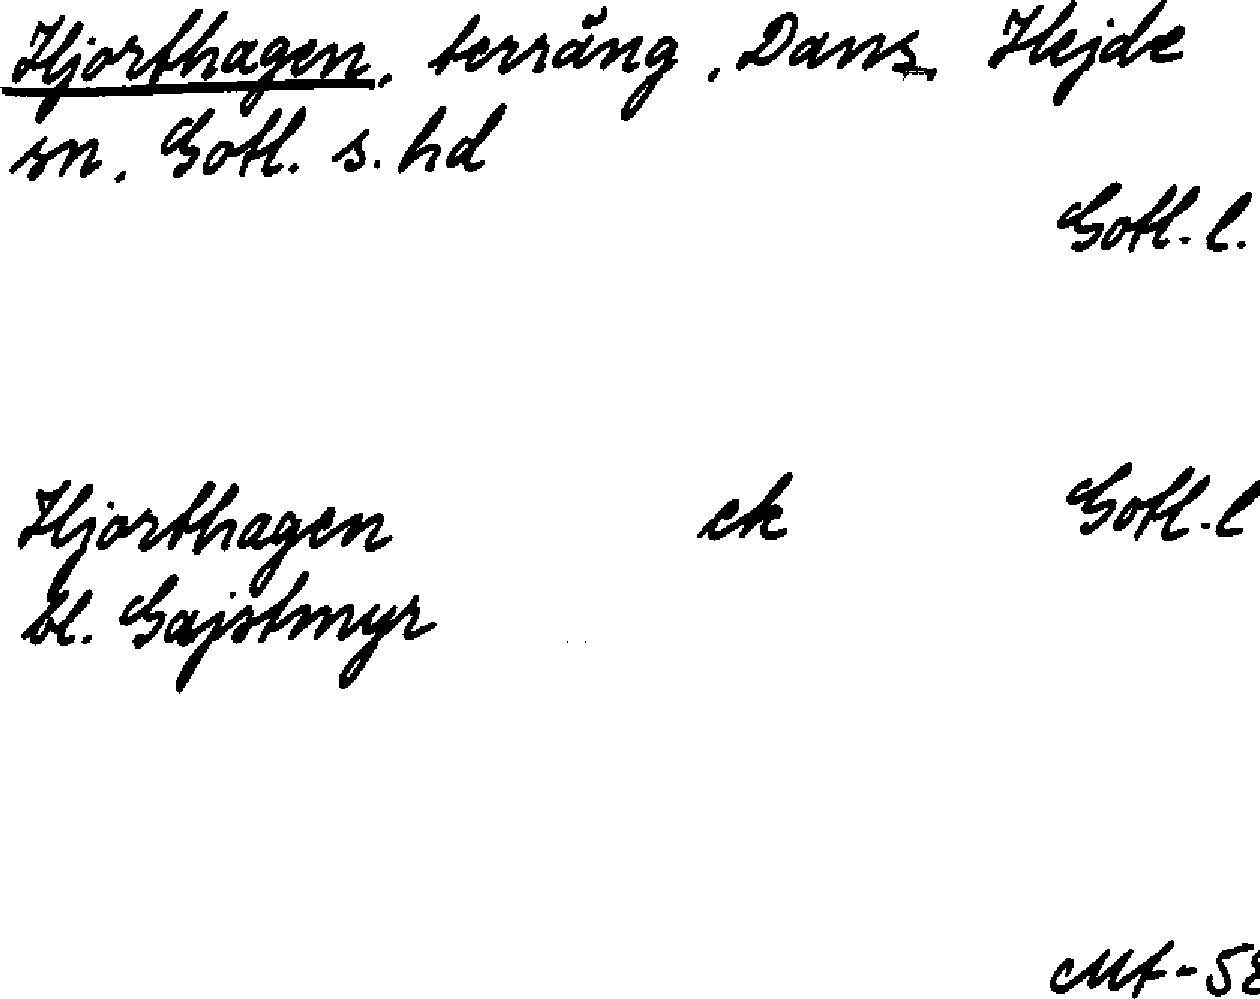 Hjorthagen, terräng, Dans, Hejde
sn. Gotl. s. hd
Gotl. l.
Hjorthagen ek Gotl. l
bl. Gajstmyr
Mf-58